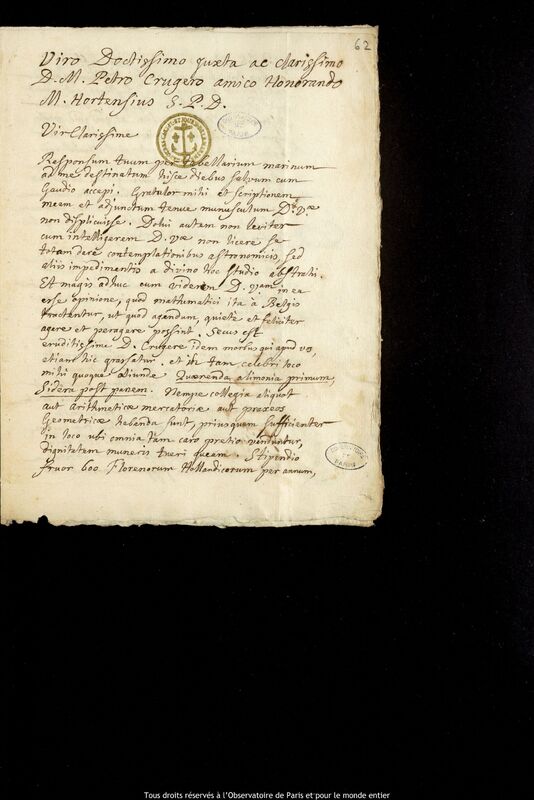 62
Viro Doctissimo juxta ac clarissimo
D. M. Petro Crugero amico Honorando
M. Hortensius S. P. D.
Vir Clarissime
Responsum tuum per tabellarium marinum
ad me destinatum hisce diebus salvum cum
gaudio accepi. Gratulor mihi et scriptionem
meam et adjunctum tenue munusculum D. væ
non displicuisse. Dolui autem non leviter
cum intelligerem D. væ non licere se
totam dare contemplationibus astronomicis, sed
aliis impedimentis a divino hoc studio abstrahi.
Et magis adhuc cum viderem D. vam in ea
esse opinione, quod mathematici ita à Belgis
tractentur, ut quod agendum, quietè et feliciter
agere et peragere possint. Secus est
eruditissime D. Crugere idem morbus qui apud vos,
etiam hic grassatur. et in tam celebri loco
mihi quoque aliunde Quærenda alimonia primum,
Sidera post panem. Nempe collegia aliquot
aut Arithmeticæ mercatoriæ aut praxeos
Geometricæ habenda sunt, priusquam sufficienter
in loco ubi omnia tam caro pretio venduntur,
dignitatem muneris tueri queam. Stipendio
fruor 600 Florenorum Hollandicorum per annum,
Tous droits réservés à l'Observatoire de Paris et pour le monde entier